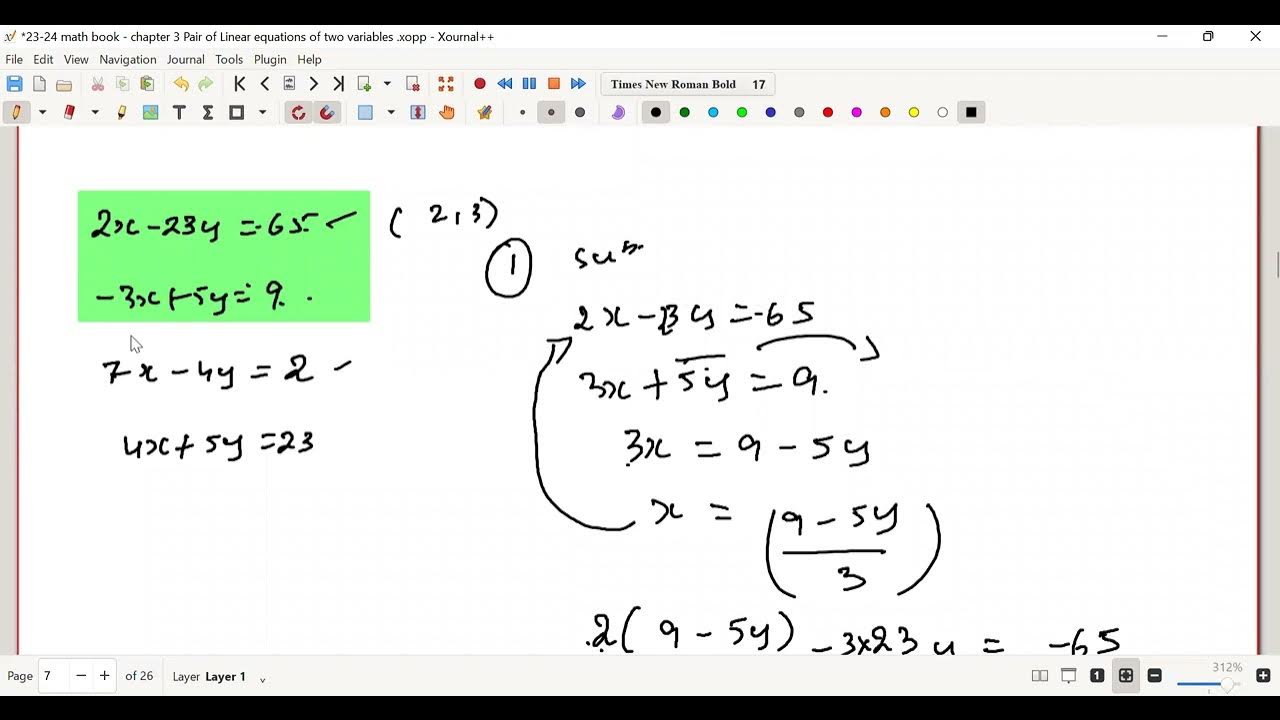 *23-24 math book - chapter 3 Pair of Linear equations of two variables .xopp - Xournal++
File Edit View Navigation Journal Tools Plugin Help
Times New Roman Bold 17
2x-23y =-65
(2,3)
-3x+5y = 9.
7x-4y = 2
4x+5y =23
1
2x-23y =-65
3x+5y = 9.
3x = 9-5y
x = (9-5y/3)
2(9-5y) -3x23y = -65
Page 7 of 26 Layer Layer 1
1
312%